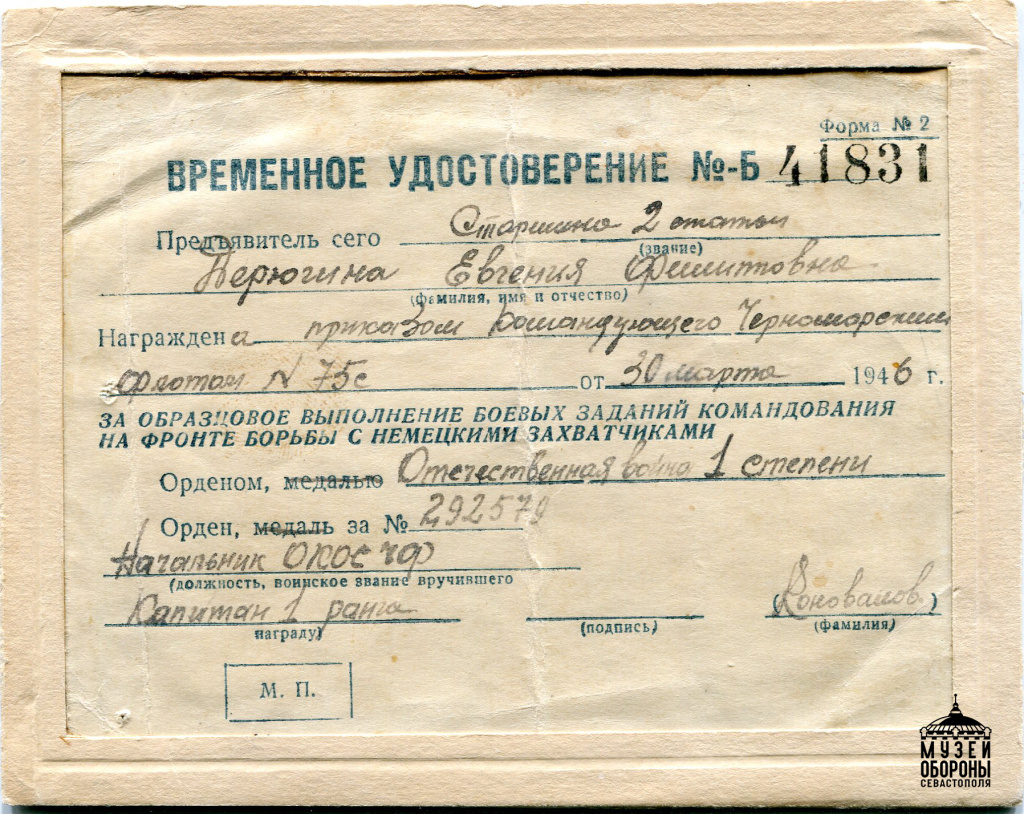 Форма № 2
ВРЕМЕННОЕ УДОСТОВЕРЕНИЕ №-Б 41831
Предъявитель сего Старшина 2 статьи
(звание)
Дерюгина Евгения Филипповна
(фамилия, имя и отчество)
Награждена приказом Командующего Черноморским
флотом N 75с от 30 марта 1946 г.
ЗА ОБРАЗЦОВОЕ ВЫПОЛНЕНИЕ БОЕВЫХ ЗАДАНИЙ КОМАНДОВАНИЯ
НА ФРОНТЕ БОРЬБЫ С НЕМЕЦКИМИ ЗАХВАТЧИКАМИ
Орденом, медалью Отечественная война 1 степени
Орден, медаль за № 292579
Начальник ОКОС ЧФ
(должность, воинское звание вручившего
Капитан 1 ранга (Коновалов)
награду) (подпись) (фамилия)
М. П.
МУЗЕЙ
ОБОРОНЫ
СЕВАСТОПОЛЯ